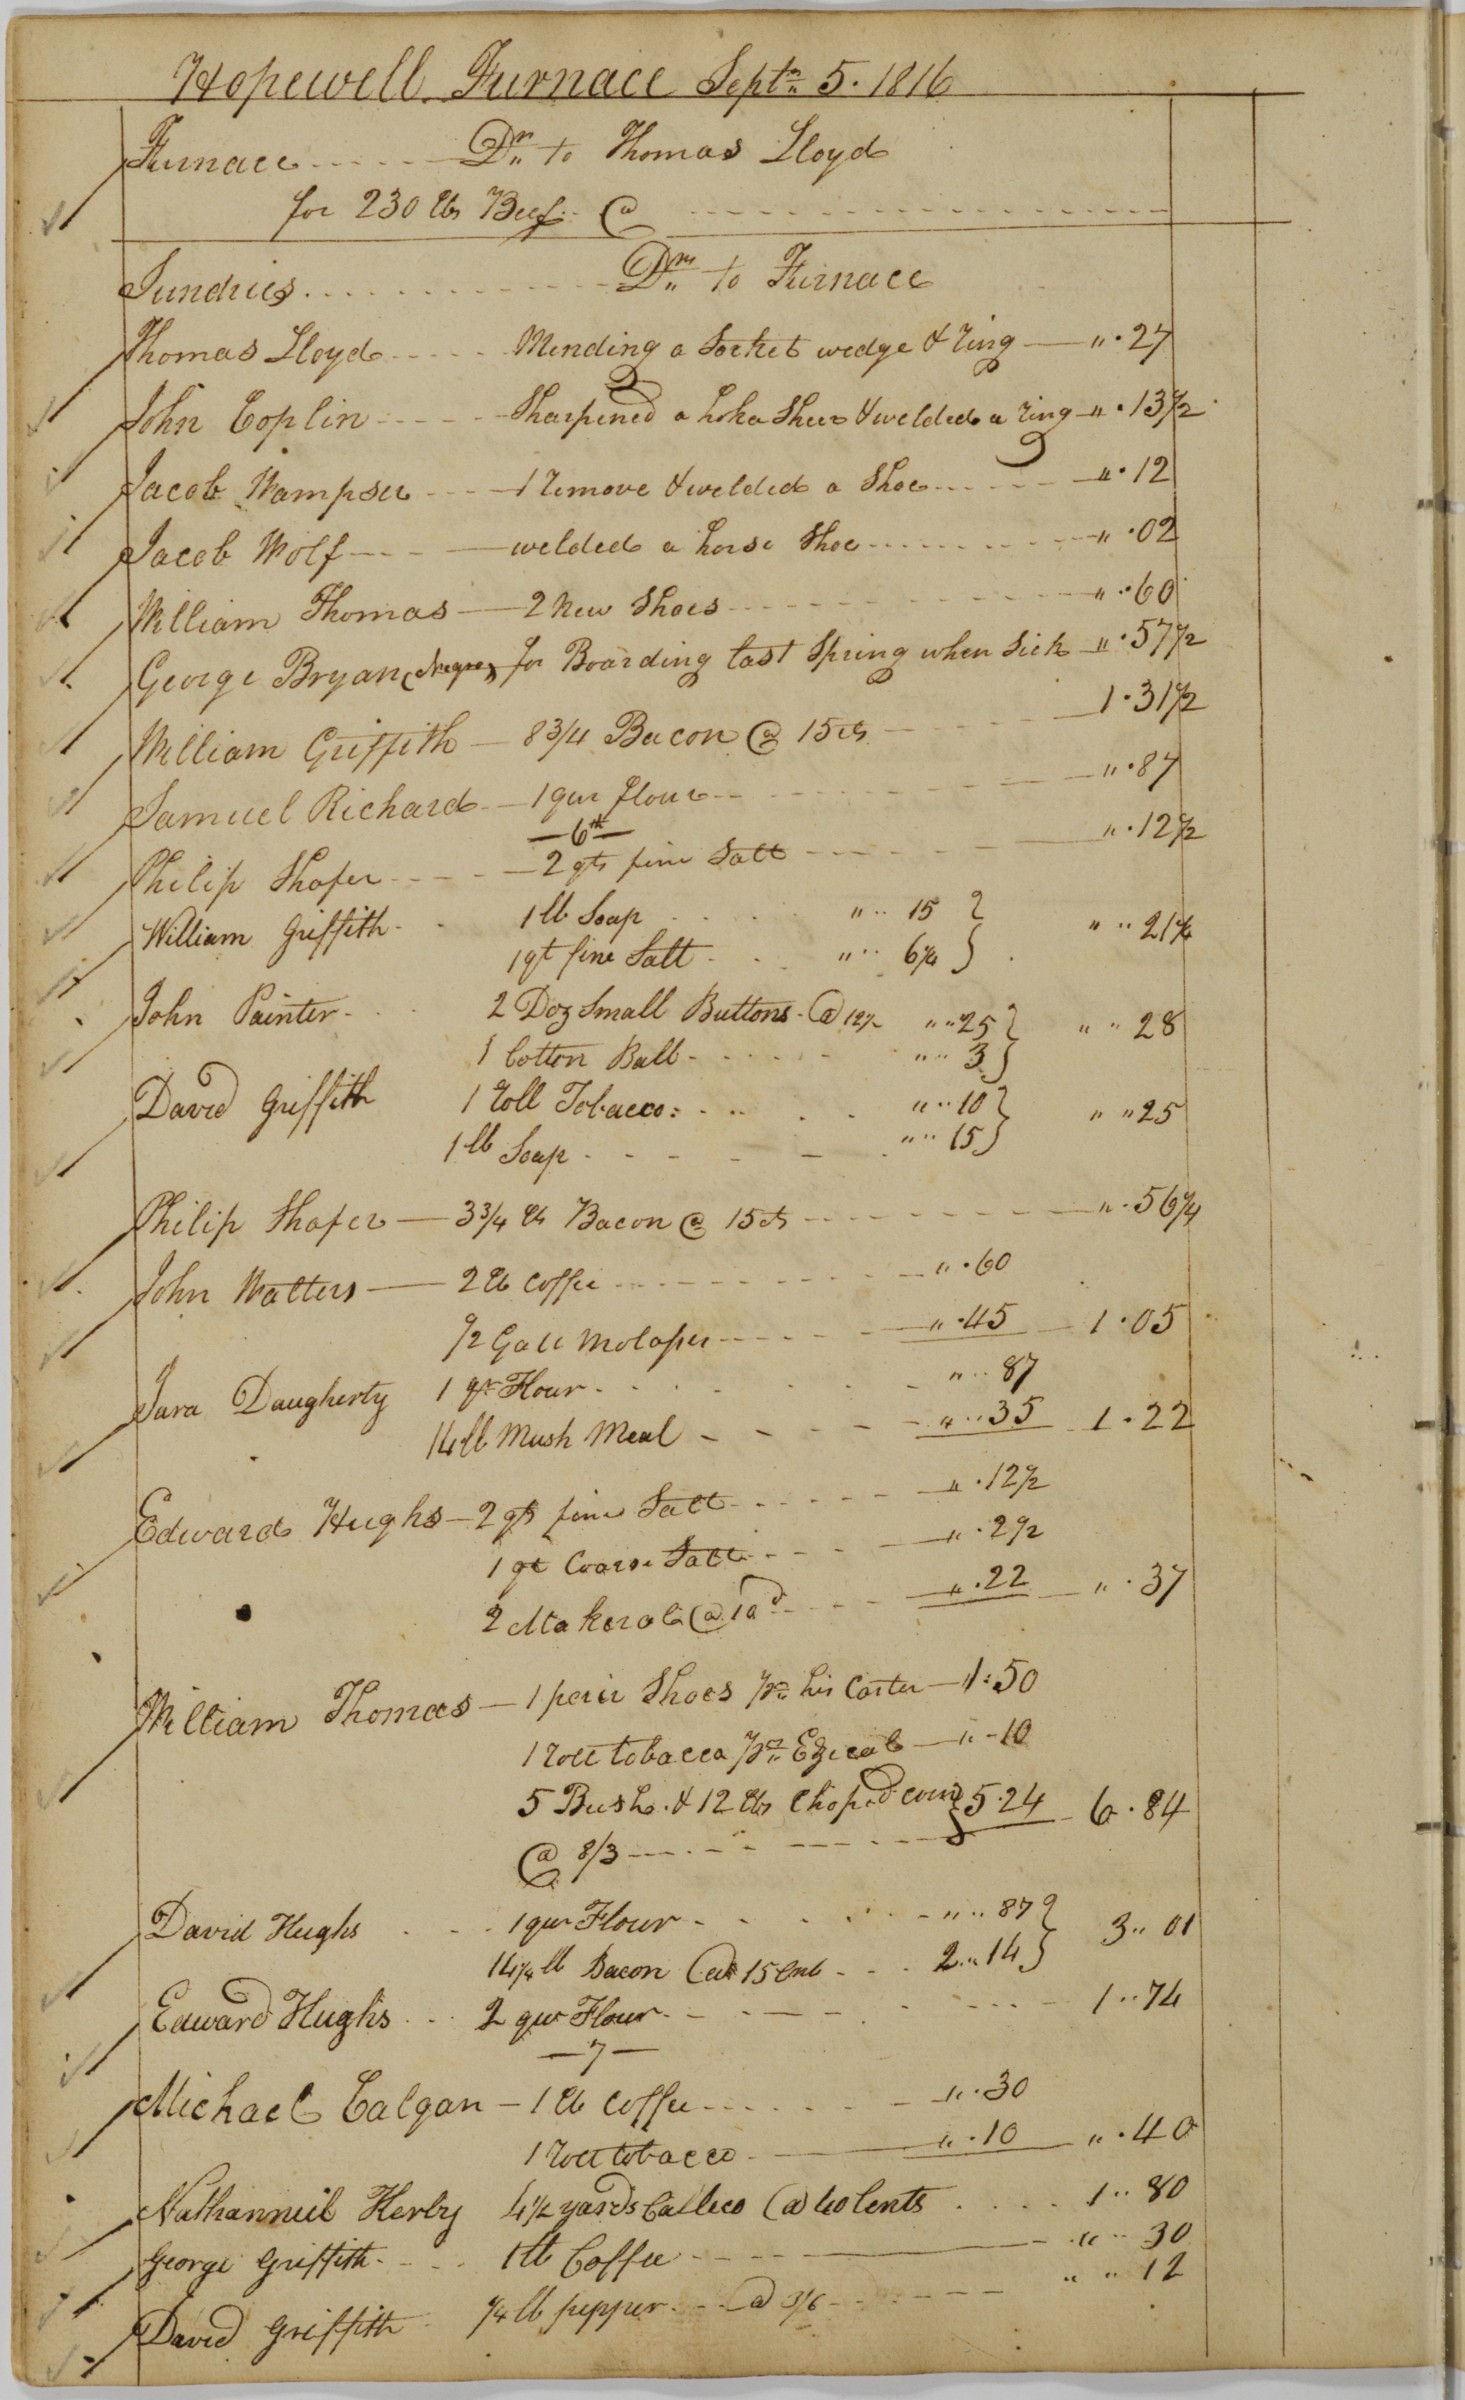 Hopewell Furnace Septr 5. 1816
Furnace Dr to Thomas Lloyd
for 230 lbs Beef @
Sundries Drs to Furnace
Thomas Lloyd Mending a Socket wedge & ring " . 27
John Coplin Sharpened a Shear & welded a ring " . 13 1/2
Jacob Wampser 1 remove & welded a Shoe " . 12
Jacob Wolf welded a horse Shoe " . 02
William Thomas 2 New Shoes " . 60
George Bryan (Negro) for Boarding last Spring when Sick " . 57 1/2
William Griffith 8 3/4 Bacon @ 15 cts 1 . 31 1/2
Samuel Richard 1 qur flour " . 87
6th
Philip Shafer 2 qts fine Salt " . 12 1/2
William Griffith 1 lb Soap " .. 15
1 qt fine Salt " .. 6 1/4 " .. 21 1/4
John Painter 2 Doz Small Buttons @ 12 1/2 " .. 25
1 Cotton Ball " .. 3 " .. 28
David Griffith 1 roll Tobacco " .. 10
1 lb Soap " .. 15 " .. 25
Philip Shafer 3 3/4 lb Bacon @ 15 cts " . 56 1/4
John Walters 2 lb Coffee " . 60
1/2 Gall Molasses " . 45 1 . 05
Sara Daugherty 1 qr Flour " .. 87
14 lb Mush Meal " .. 35 1 . 22
Edward Hughs 2 qts fine Salt " . 12 1/2
1 qt Coarse Salt " . 2 1/2
2 Makerel @ 10d " . 22 " . 37
William Thomas 1 pair Shoes pr his Carter 1 : 50
1 roll tobacco pr Ezical " - 10
5 Bush. & 12 lbs Choped corn 5.24 6 . 84
@ 8/3
David Hughs 1 qur Flour " .. 87
14 1/4 lb Bacon @ 15 Cnts 2 .. 14 3 .. 01
Edward Hughs 2 qur Flour 1 .. 74
7
Michael Calgan 1 lb Coffee " . 30
1 roll tobacco " . 10 " . 40
Nathanniel Kerby 4 1/2 yards Calleco @ 40 Cents 1 .. 80
George Griffith 1 lb Coffee " .. 30
David Griffith 1/4 lb pepper @ 3/6 " .. 12